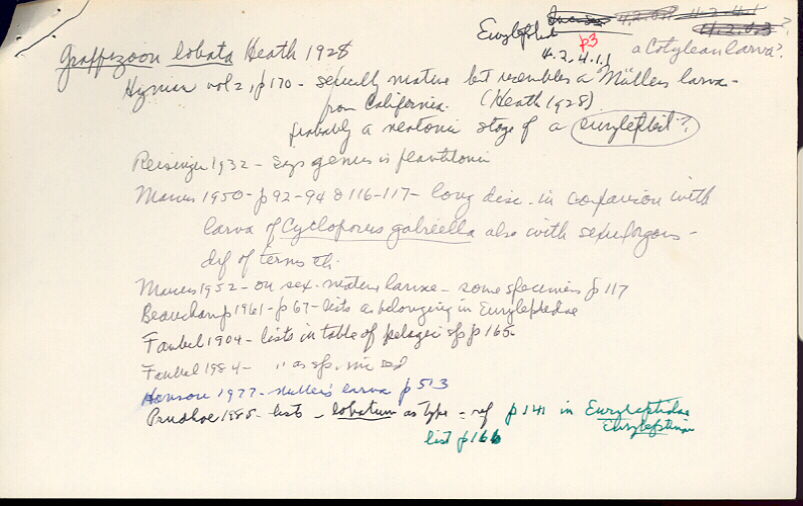 Euryleptid 4.2.4.1 4.2.4.3 ?
p3
4.2.4.1.1 a Cotylean larva?
Graffizoon lobata Heath 1928
Hyman vol 2, p170 - sexually mature but resembles a Müllers larva -
from California. (Heath 1928)
probably a neotonic stage of a euryleptid?
Reisinger 1932 - says genus is planktonic
Marcus 1950 - p92-94 & 116-117 - long disc. in comparison with
larva of Cycloporus gabriella also with sexual organs -
def of terms etc.
Marcus 1952 - on sex. mature larvae - some specimens p 117
Beauchamp 1961 - p 67 - lists as belonging in Euryleptidae
Faubel 1904 - lists in table of pelagic sp p 165.
Faubel 1984 - " as sp.
1977 - Muller's larva p 513
Prudhoe 1985 - lists - lobatum as type - ref p 141 in Euryleptidae
Euryleptinae
list p 166